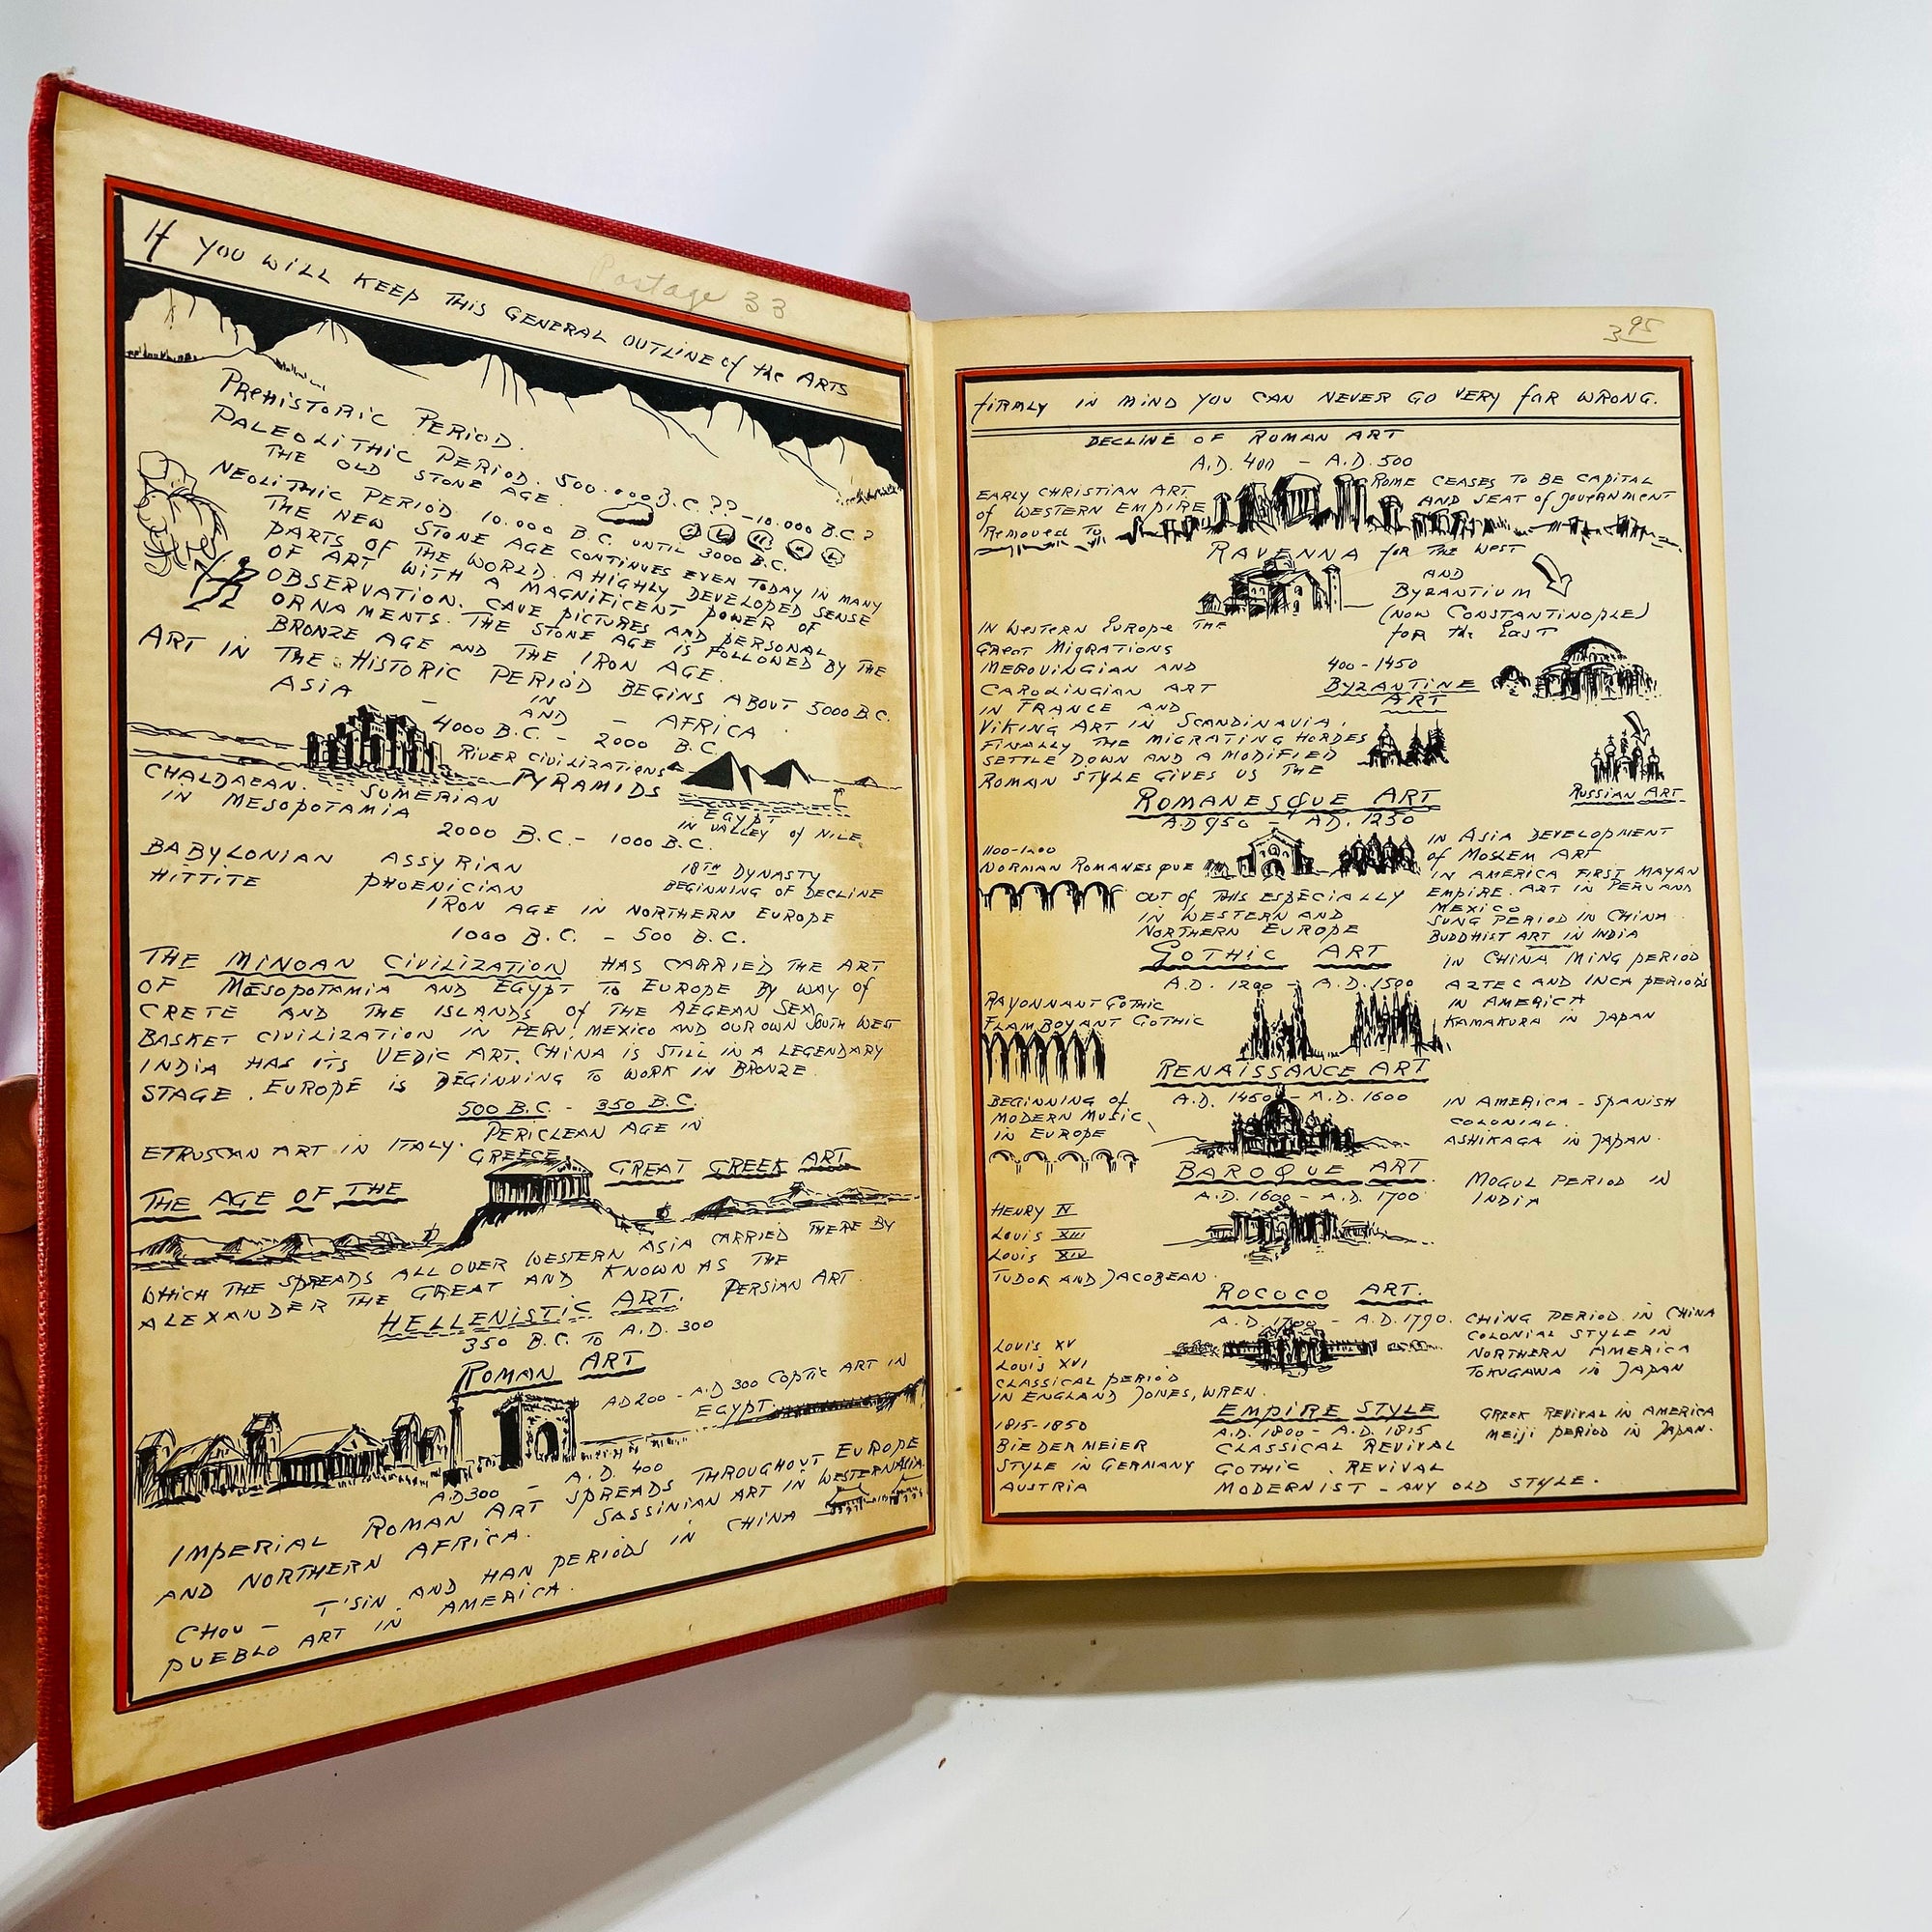 Postage 33
If YOU WILL KEEP THIS GENERAL OUTLINE of the ARTS
PREHISTORIC PERIOD.
PALEOLITHIC PERIOD. 500.000 B.C.?? - 10.000 B.C.?
THE OLD STONE AGE.
NEOLITHIC PERIOD 10.000 B.C. UNTIL 3000 B.C.
THE NEW STONE AGE CONTINUES EVEN TODAY IN MANY
PARTS OF THE WORLD. A HIGHLY DEVELOPED SENSE
OF ART WITH A MAGNIFICENT POWER OF
OBSERVATION. CAVE PICTURES AND PERSONAL
ORNAMENTS. THE STONE AGE IS FOLLOWED BY THE
BRONZE AGE AND THE IRON AGE.
ART IN THE HISTORIC PERIOD BEGINS ABOUT 5000 B.C.
IN
ASIA - AND - AFRICA.
4000 B.C. - 2000 B.C.
RIVER CIVILIZATIONS
CHALDAEAN. SUMERIAN PYRAMIDS
IN MESOPOTAMIA
EGYPT
IN VALLEY of NILE.
2000 B.C. - 1000 B.C.
BABYLONIAN ASSYRIAN 18TH DYNASTY
HITTITE PHOENICIAN BEGINNING OF DECLINE
IRON AGE IN NORTHERN EUROPE
1000 B.C. - 500 B.C.
THE MINOAN CIVILIZATION HAS CARRIED THE ART
OF MESOPOTAMIA AND EGYPT TO EUROPE BY WAY OF
CRETE AND THE ISLANDS of THE AEGEAN SEA
BASKET CIVILIZATION IN PERU, MEXICO AND OUR OWN SOUTH WEST
INDIA HAS ITS VEDIC ART. CHINA IS STILL IN A LEGENDARY
STAGE. EUROPE IS BEGINNING TO WORK IN BRONZE.
500 B.C. - 350 B.C.
PERICLEAN AGE IN
ETRUSCAN ART IN ITALY. GREECE
THE AGE OF THE GREAT GREEK ART
WHICH THE SPREADS ALL OVER WESTERN ASIA CARRIED THERE BY
ALEXANDER THE GREAT AND KNOWN AS THE
HELLENISTIC ART. PERSIAN ART.
350 B.C. TO A.D. 300
ROMAN ART
AD 200 - A.D 300 COPTIC ART IN
EGYPT
A.D 300 - A.D. 400
IMPERIAL ROMAN ART SPREADS THROUGHOUT EUROPE
AND NORTHERN AFRICA. SASSINIAN ART IN WESTERN ASIA.
CHOU - T'SIN AND HAN PERIODS IN CHINA
PUEBLO ART IN AMERICA.
3 95
FIRMLY IN MIND YOU CAN NEVER GO VERY far WRONG.
DECLINE OF ROMAN ART
A.D. 400 - A.D. 500
EARLY CHRISTIAN ART
of WESTERN EMPIRE
ROME CEASES TO BE CAPITAL
AND SEAT of GOVERNMENT
Removed To
RAVENNA for THE WEST
AND
BYZANTIUM
(NOW CONSTANTINOPLE)
for the East
IN Western Europe THE
GReat MIGRATIONS
MEROVINGIAN AND
CAROLINGIAN ART
IN FRANCE AND
VIKING ART IN SCANDINAVIA,
FINALLY THE MIGRATING HORDES
SETTLE DOWN AND A MODIFIED
ROMAN STYLE GIVES US THE
400 - 1450
BYZANTINE
ART
RUSSIAN ART.
ROMANESQUE ART
A.D 950 - A.D. 1250
1100-1200
NORMAN ROMANESQUE
IN ASIA DEVELOPMENT
of MOSLEM ART
IN AMERICA FIRST MAYAN
EMPIRE. ART IN PERU AND
MEXICO
SUNG PERIOD IN CHINA
BUDDHIST ART IN INDIA
OUT of THIS ESPECIALLY
IN WESTERN AND
NORTHERN EUROPE
GOTHIC ART
A.D. 1200 - A.D. 1500
IN CHINA MING PERIOD
AZTEC AND INCA PERIODS
IN AMERICA
KAMAKURA IN JAPAN
RAYONNANT GOTHIC
FLAMBOYANT GOTHIC
RENAISSANCE ART
A.D. 1450 - A.D. 1600
BEGINNING of
MODERN MUSIC
IN EUROPE
IN AMERICA - SPANISH
COLONIAL.
ASHIKAGA IN JAPAN.
BAROQUE ART.
A.D. 1600 - A.D. 1700
MOGUL PERIOD IN
INDIA
HENRY IV
LOUIS XIII
LOUIS XIV
TUDOR AND JACOBEAN.
ROCOCO ART.
A.D. 1700 - A.D. 1790.
CHING PERIOD IN CHINA
COLONIAL STYLE IN
NORTHERN AMERICA
TOKUGAWA IN JAPAN
LOUIS XV
LOUIS XVI
CLASSICAL PERIOD
IN ENGLAND JONES, WREN.
EMPIRE STYLE
A.D. 1800 - A.D. 1815
GREEK REVIVAL IN AMERICA
MEIJI PERIOD IN JAPAN.
1815-1850
BIEDERMEIER
STYLE IN GERMANY
AUSTRIA
CLASSICAL REVIVAL
GOTHIC REVIVAL
MODERNIST - ANY OLD STYLE.